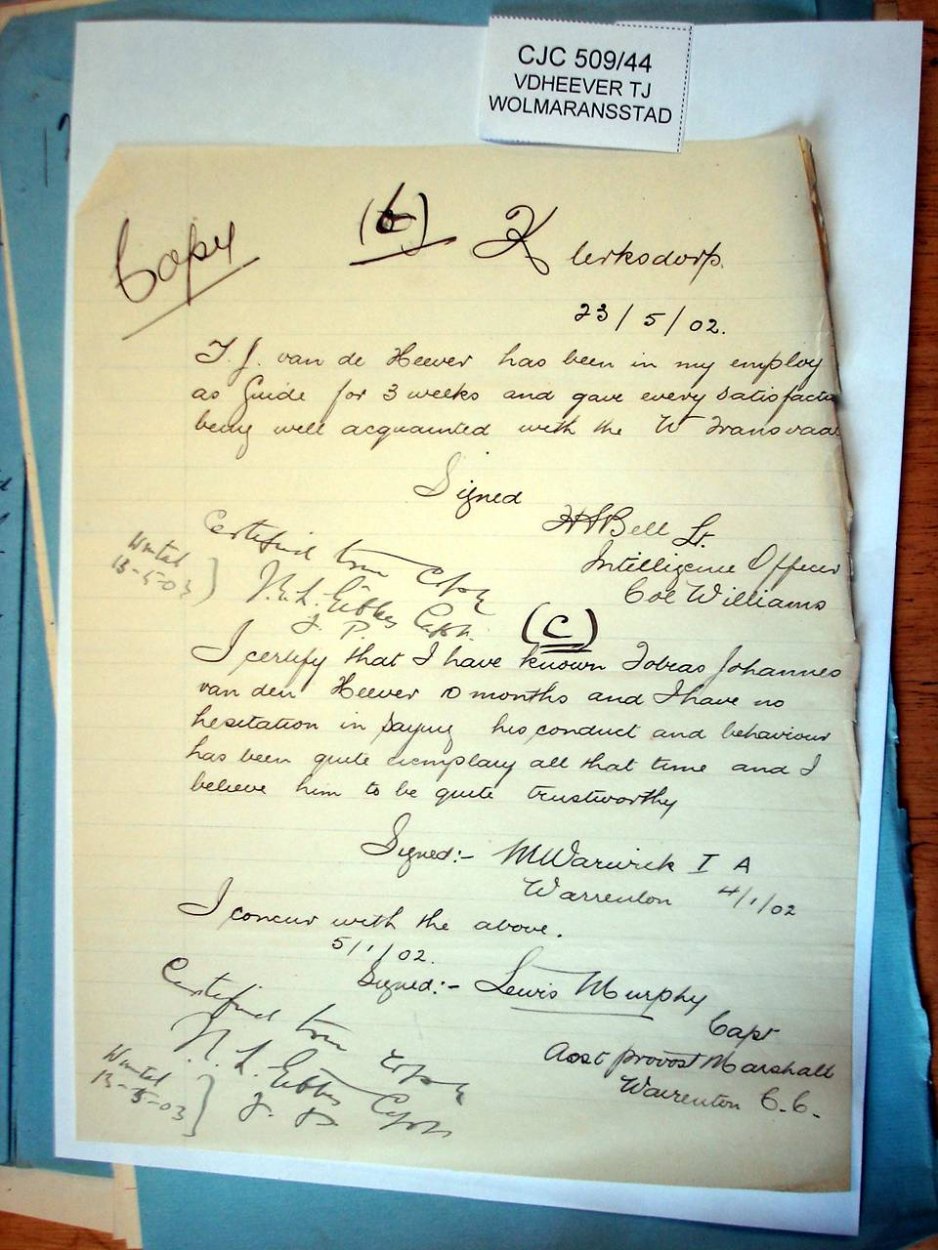 CJC 509/44
VDHEEVER TJ
WOLMARANSSTAD
Copy
(b)
Klerksdorp.
23/5/02.
T. J. van de Heever has been in my employ
as Guide for 3 weeks and gave every satisfactio
being well acquainted with the W Transvaal
Signed
H S Bell Lt.
Intelligence Officer
Col Williams
Certified true Copy
N. L. Gibbs Capt.
J. P.
13-5-03
(C)
I certify that I have known Tobias Johannes
van den Heever 10 months and I have no
hesitation in saying his conduct and behaviour
has been quite exemplary all that time and I
believe him to be quite trustworthy
Signed:- M Warwick I A
Warrenton 4/1/02
I concur with the above.
5/1/02.
Signed:- Lewis Murphy
Capt
Asst provost Marshall
Warrenton C.C.
Certified true Copy
N. L. Gibbs Capt
J. P.
13-5-03